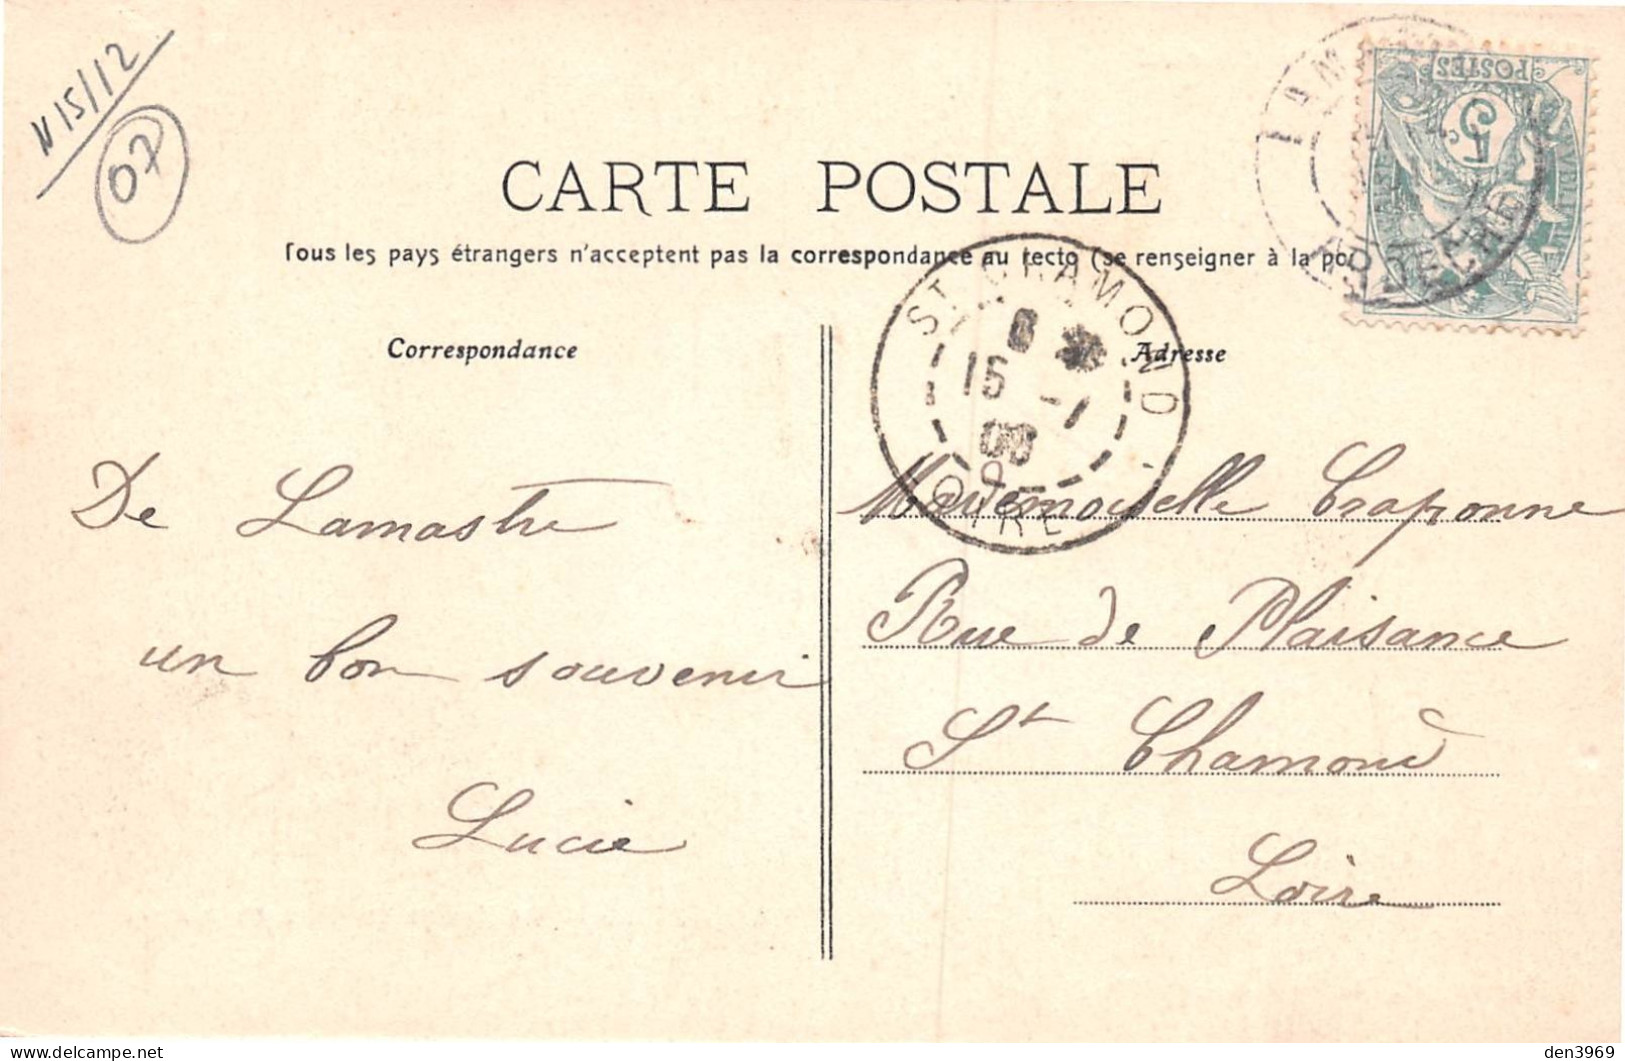 N 15/12
07
CARTE POSTALE
Tous les pays étrangers n'acceptent pas la correspondance au recto (se renseigner à la po
Correspondance
Adresse
POSTES
5
ARDECHE
ST CHAMOND
15 -1
08
LOIRE
De Lamastre
un bon souvenir
Lucie
Mademoiselle Craponne
Rue de Plaisance
St Chamond
Loire
den3969